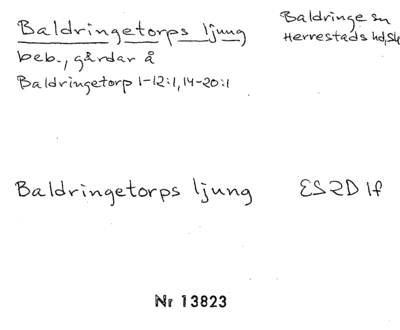 Baldringetorps ljung
Baldringe sn
Herrestads hd, Sk
beb., gårdar å
Baldringetorp 1-12:1, 14-20:1
Baldringetorps ljung
ES2D 1f
Nr 13823